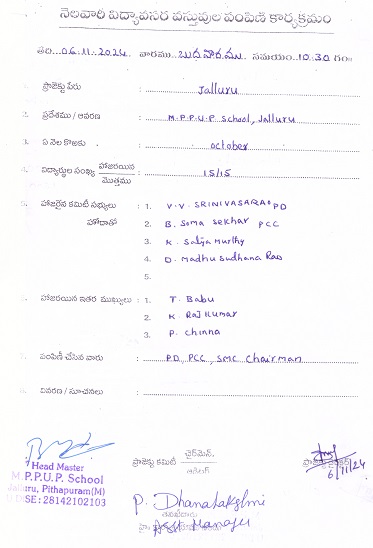 నెలవారీ విద్యావసర వస్తువుల పంపిణీ కార్యక్రమం
తేది. 06.11.2024. వారము బుధవారము. సమయం 10:30 గం॥
1. ప్రాజెక్టు పేరు : Jalluru
2. ప్రదేశము / ఆవరణ : M.P.P.U.P School, Jalluru
3. ఏ నెల కొఱకు : october
4. విద్యార్థుల సంఖ్య హాజరయిన / మొత్తము : 15/15
5. హాజరైన కమిటీ సభ్యులు : 1. V.V. SRINIVASARAO PD
హోదాతో 2. B. Soma Sekhar PCC
3. K. Satya Murthy
4. D. Madhu Sudhana Rao
5.
6. హాజరయిన ఇతర ముఖ్యులు : 1. T. Babu
2. K. Raj Kumar
3. P. Chinna
7. పంపిణీ చేసిన వారు : PD, PCC, SMC Chairman
8. వివరణ / సూచనలు :
Head Master
M.P.P.U.P. School
Jalluru, Pithapuram(M)
U DISE: 28142102103
ప్రాజెక్టు కమిటీ ఛైర్మెన్.
6/11/24
P. Dhanalakshmi
Manager